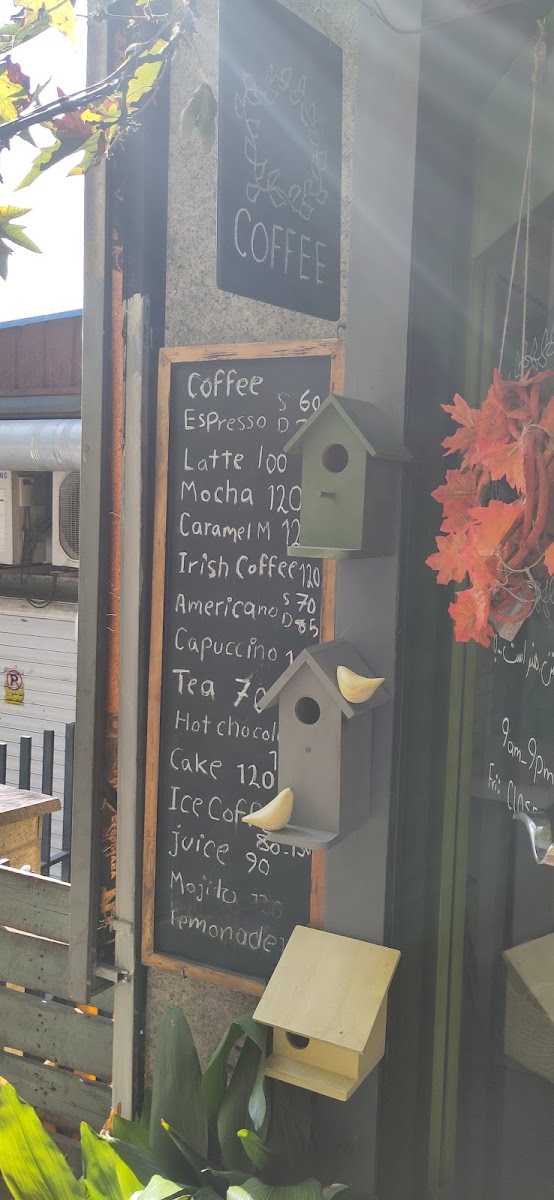 COFFEE
Coffee S 60
Espresso D
Latte 100
Mocha 120
Caramel M
Irish Coffee 120
Americano S 70
D 85
Capuccino
Tea 70
Hot
Cake 120
Ice
juice
90
Mojito
Lemonade
9am_9pm
Fri: Close